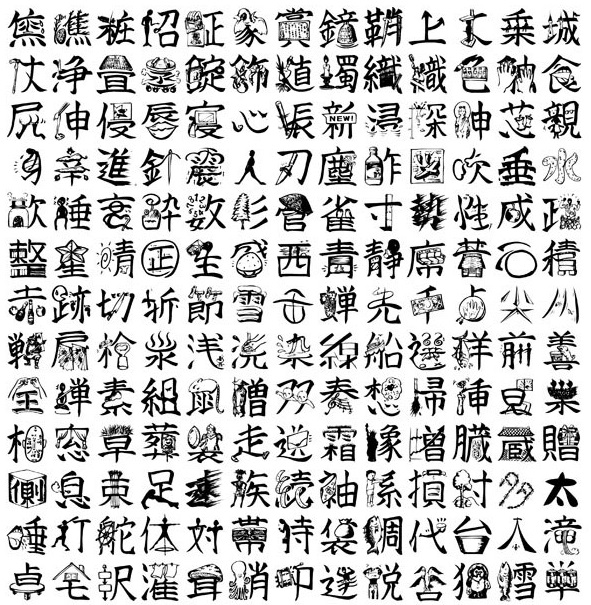 粧 招 証 象 賞 鐘 鞘 上 丈 乗 城
杖 浄 畳 蒸 錠 飾 植 燭 織 職 色 触 食
尻 伸 侵 唇 寝 心 振 新 NEW! 浸 深 神 芯 親
身 辛 進 針 人 刃 塵 酢 図 吹 垂 水
炊 睡 衰 酔 数 杉 菅 雀 寸 勢 性 成 政
整 星 晴 正 生 盛 西 青 静 席 昔 石 積
赤 跡 切 折 節 雪 舌 蝉 先 千 占 尖 川
戦 扇 栓 泉 浅 洗 染 線 船 選 鮮 前 善
全 禅 素 組 鼠 僧 双 奏 想 掃 挿 巣
相 窓 草 葬 装 走 送 霜 像 増 臓 蔵 贈
側 息 束 足 速 族 続 袖 損 多 太
唾 打 舵 体 対 帯 待 袋 鯛 代 台 人 滝
卓 宅 濯 茸 蛸 叩 達 脱 谷 狸 鱈 単